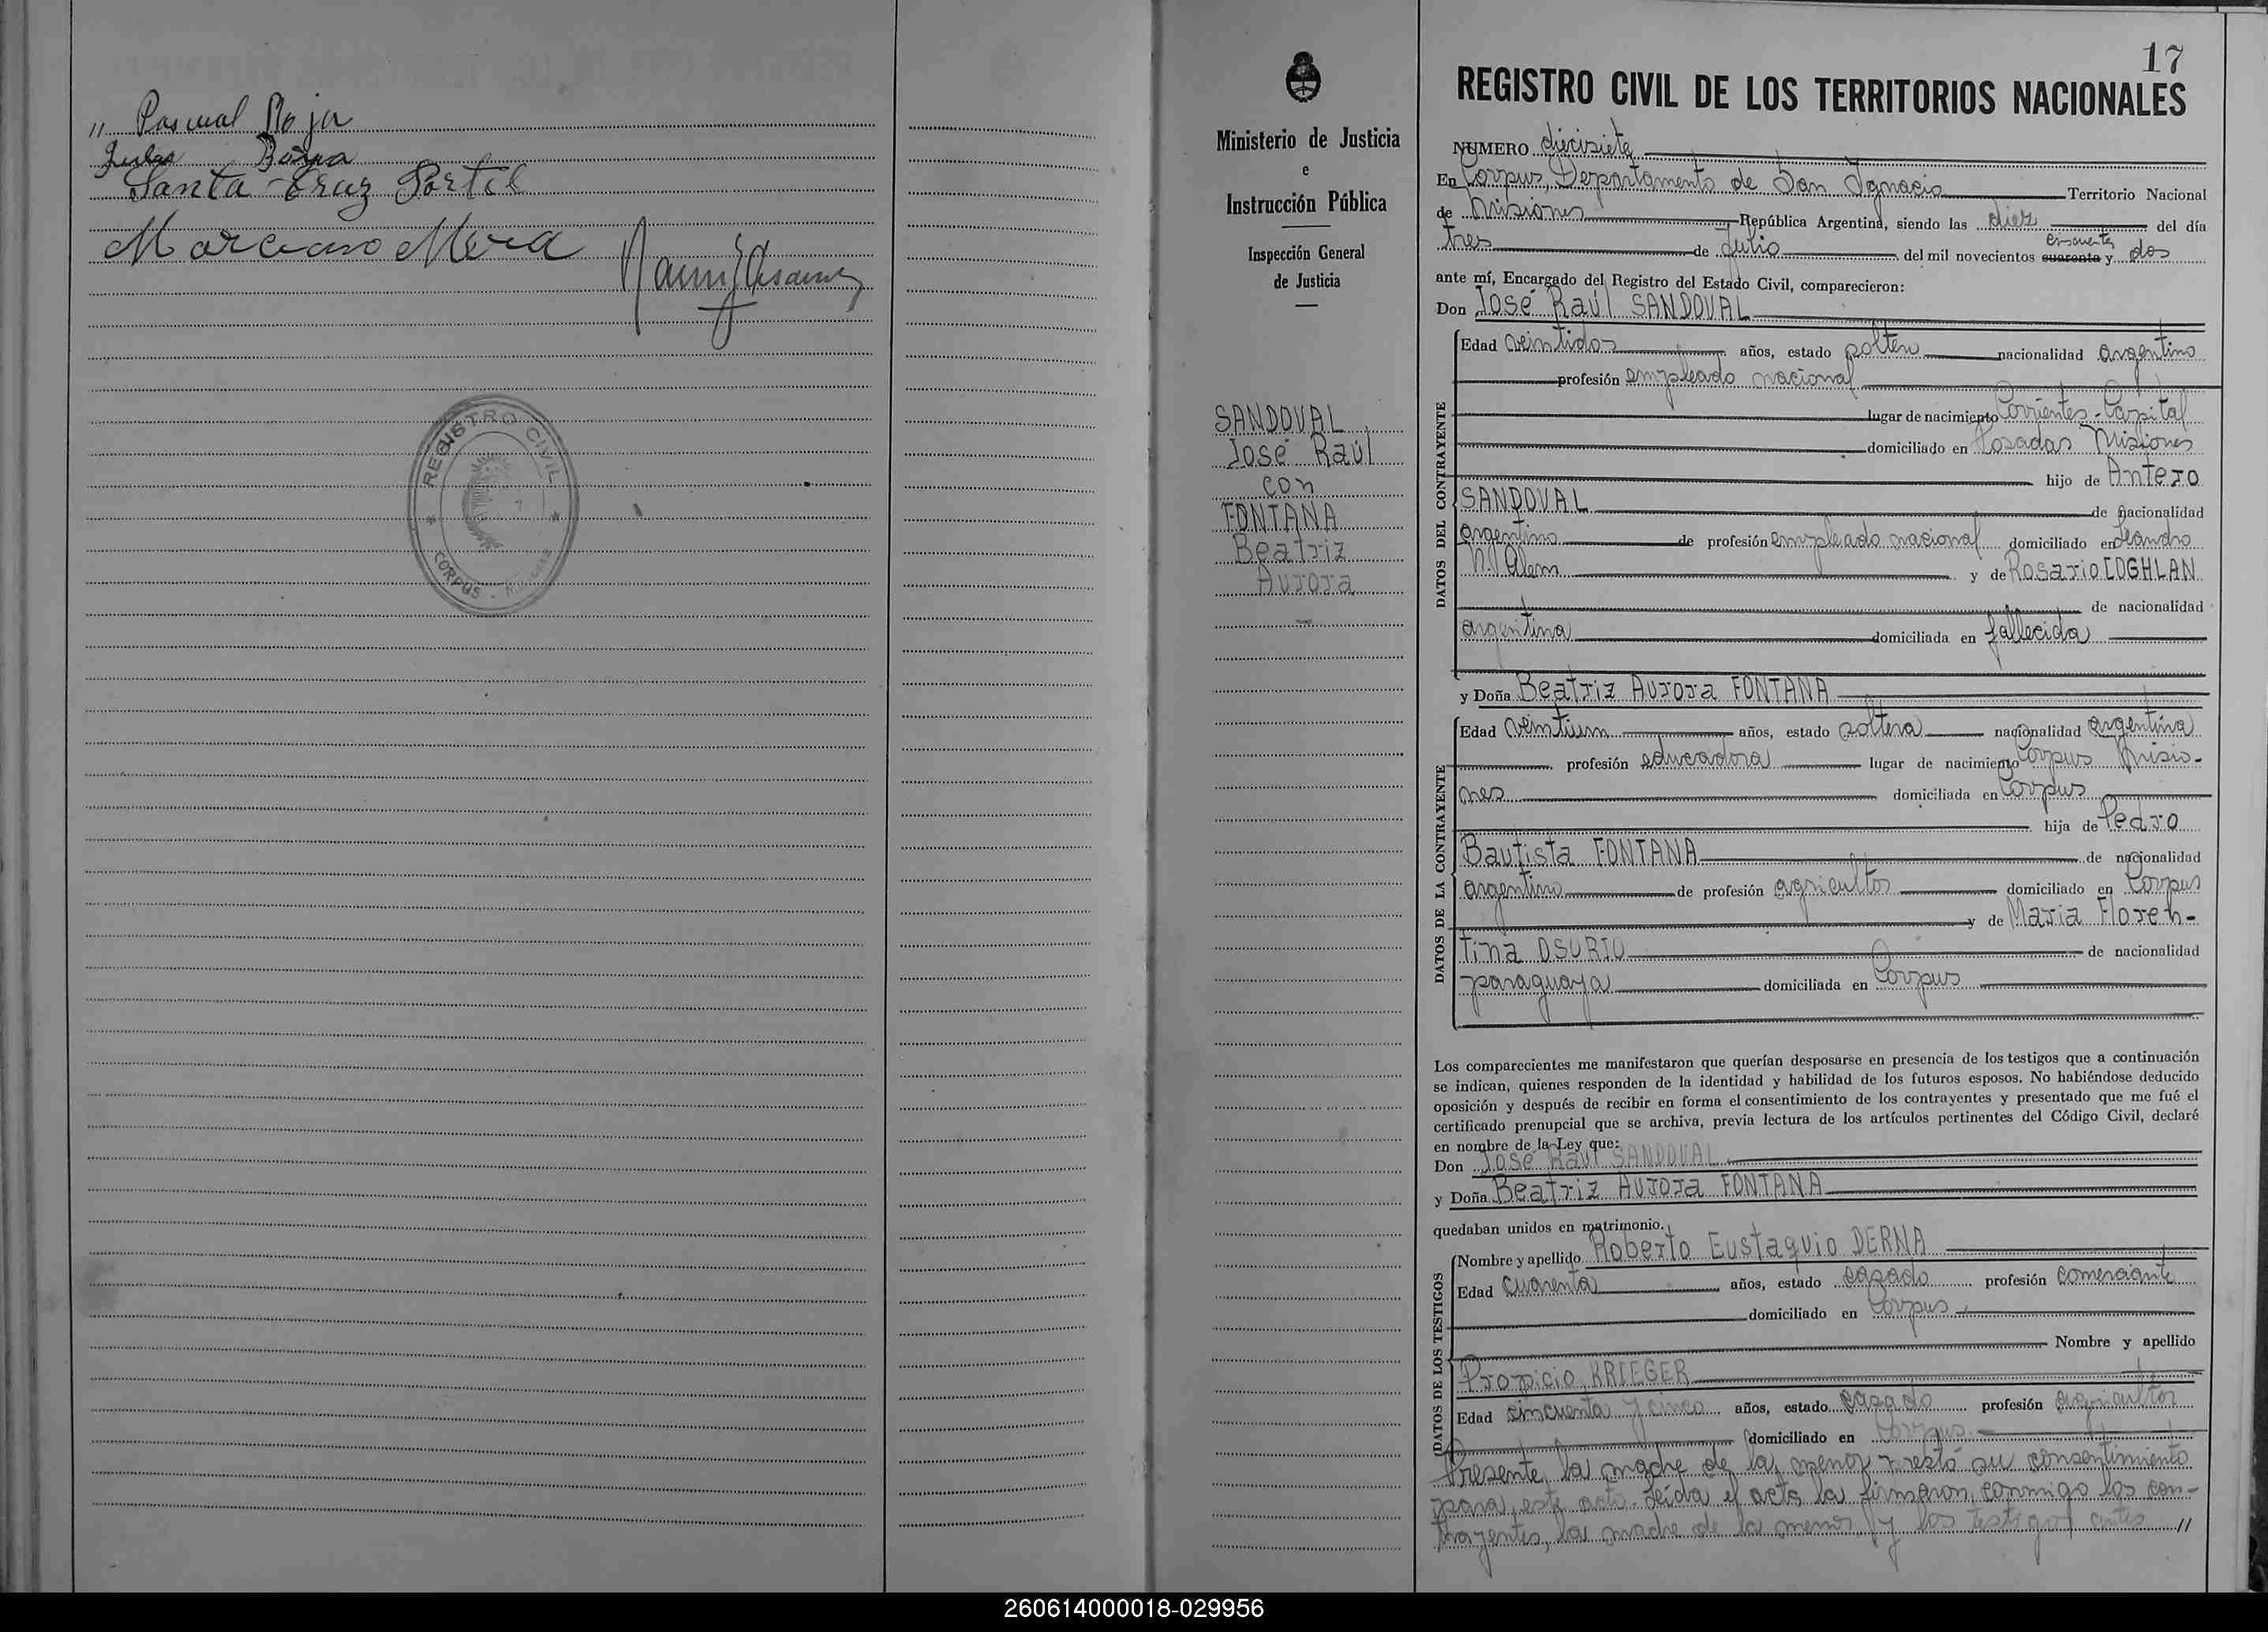 " Pascual Roja
Santa Cruz Portel
Marciano Mera
REGISTRO CIVIL
CORPUS - Misiones
Ministerio de Justicia
e
Instrucción Pública
Inspección General
de Justicia
SANDOVAL
José Raúl
con
FONTANA
Beatriz
Aurora
17
REGISTRO CIVIL DE LOS TERRITORIOS NACIONALES
NUMERO diecisiete
En Corpus, Departamento de San Ignacio Territorio Nacional
de Misiones República Argentina, siendo las diez del día
cincuenta
tres de Julio del mil novecientos cuarenta y dos
ante mí, Encargado del Registro del Estado Civil, comparecieron:
Don José Raúl SANDOVAL
Edad veintidos años, estado soltero nacionalidad argentino
profesión empleado nacional
lugar de nacimiento Corrientes - Capital
domiciliado en Posadas Misiones
hijo de Antero
SANDOVAL de nacionalidad
argentino de profesión empleado nacional domiciliado en Leandro
N. Alem y de Rosario COGHLAN
de nacionalidad
argentina domiciliada en fallecida
DATOS DEL CONTRAYENTE
y Doña Beatriz Aurora FONTANA
Edad veintiun años, estado soltera nacionalidad argentina
profesión educadora lugar de nacimiento Corpus Misio-
nes domiciliada en Corpus
hija de Pedro
Bautista FONTANA de nacionalidad
argentino de profesión agricultor domiciliado en Corpus
y de Maria Floren-
tina OSORIO de nacionalidad
paraguaya domiciliada en Corpus
DATOS DE LA CONTRAYENTE
Los comparecientes me manifestaron que querían desposarse en presencia de los testigos que a continuación
se indican, quienes responden de la identidad y habilidad de los futuros esposos. No habiéndose deducido
oposición y después de recibir en forma el consentimiento de los contrayentes y presentado que me fué el
certificado prenupcial que se archiva, previa lectura de los artículos pertinentes del Código Civil, declaré
en nombre de la Ley que:
Don José Raúl SANDOVAL
y Doña Beatriz Aurora FONTANA
quedaban unidos en matrimonio.
Nombre y apellido Roberto Eustaquio DERNA
Edad cuarenta años, estado casado profesión comerciante
domiciliado en Corpus
Nombre y apellido
Propicio KRIEGER
Edad cincuenta y cinco años, estado casado profesión agricultor
domiciliado en Corpus
DATOS DE LOS TESTIGOS
Presente la madre de la menor prestó su consentimiento
para este acto. Leída el acta la firmaron conmigo los con-
trayentes, la madre de la menor y los testigos antes //
260614000018-029956